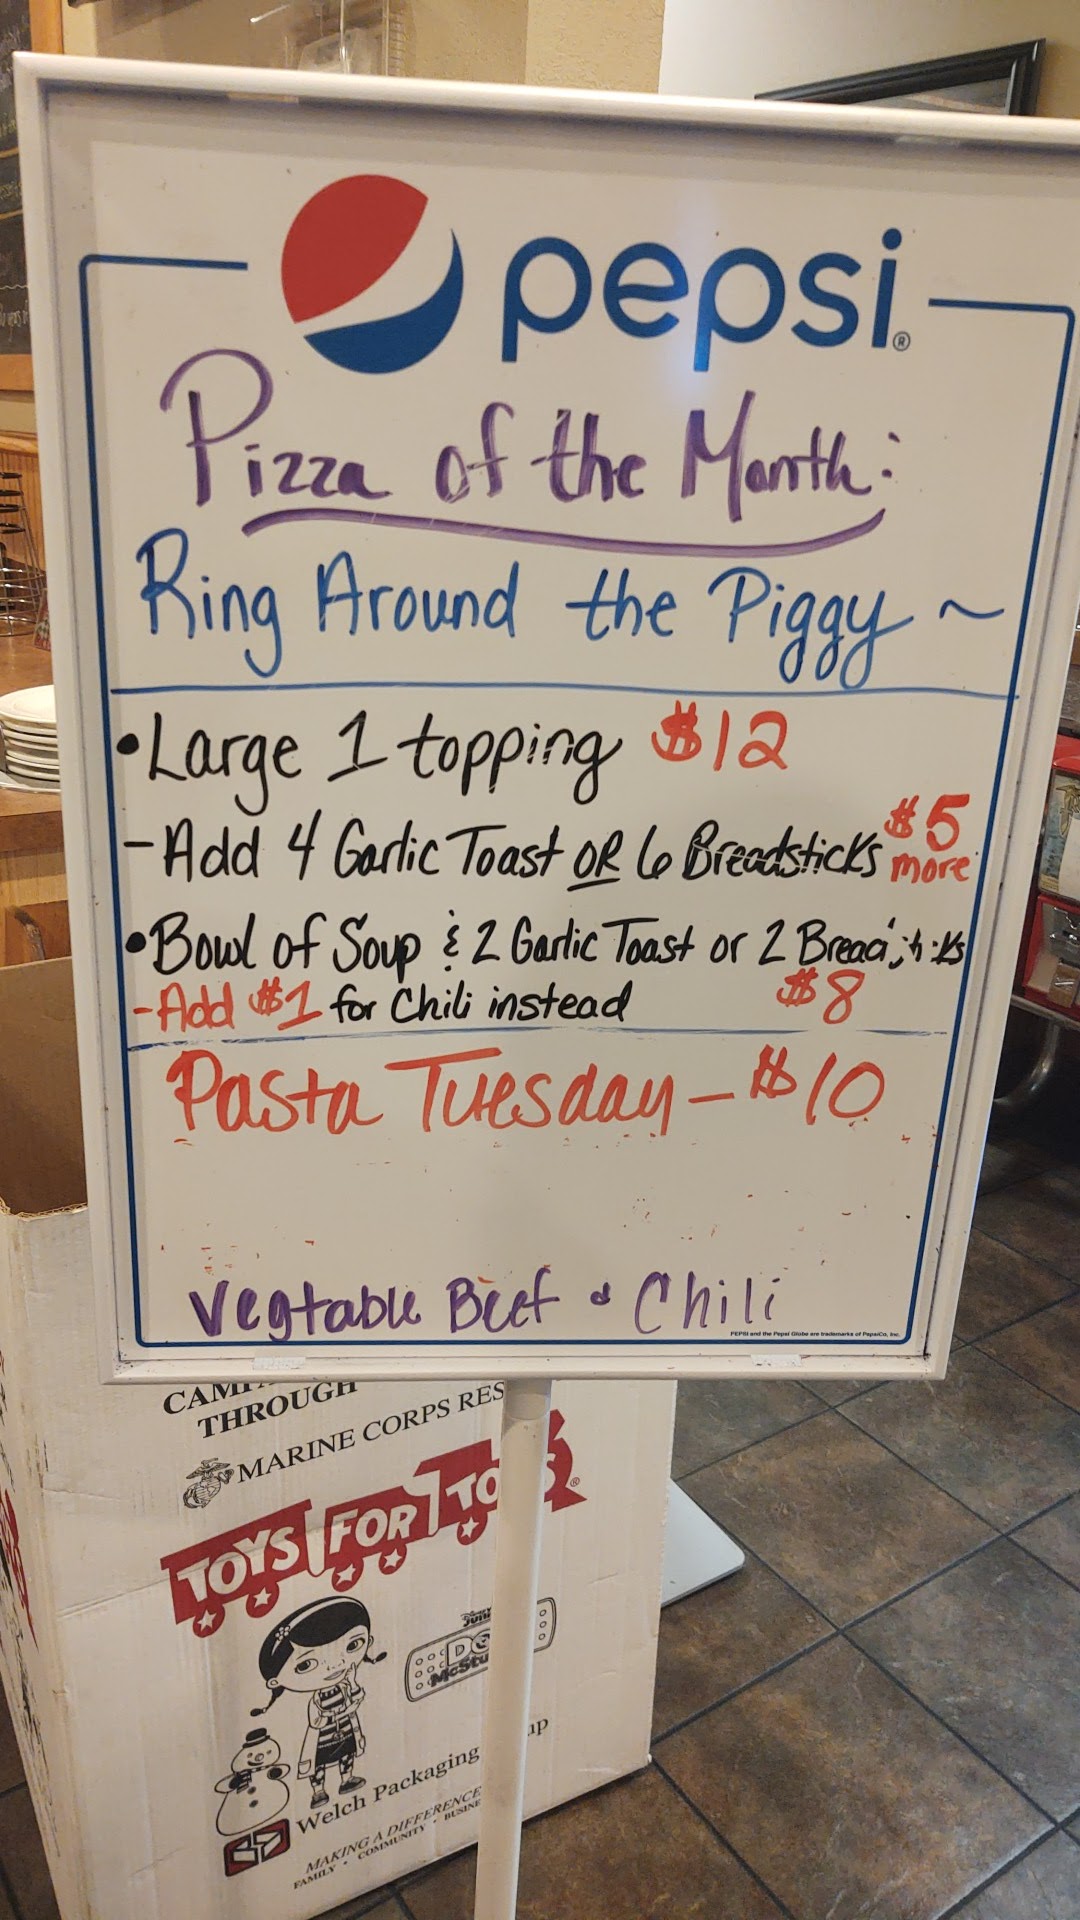 pepsi®
Pizza of the Month:
Ring Around the Piggy ~
• Large 1 topping $12
- Add 4 Garlic Toast OR 6 Breadsticks $5 more
• Bowl of Soup & 2 Garlic Toast or 2 Breadsticks
- Add $1 for Chili instead $8
Pasta Tuesday - $10
Vegtable Beef & Chili
PEPSI and the Pepsi Globe are trademarks of PepsiCo, Inc.
THROUGH
MARINE CORPS RES
TOYS FOR TO
Welch Packaging
MAKING A DIFFERENCE
FAMILY • COMMUNITY • BUSINE